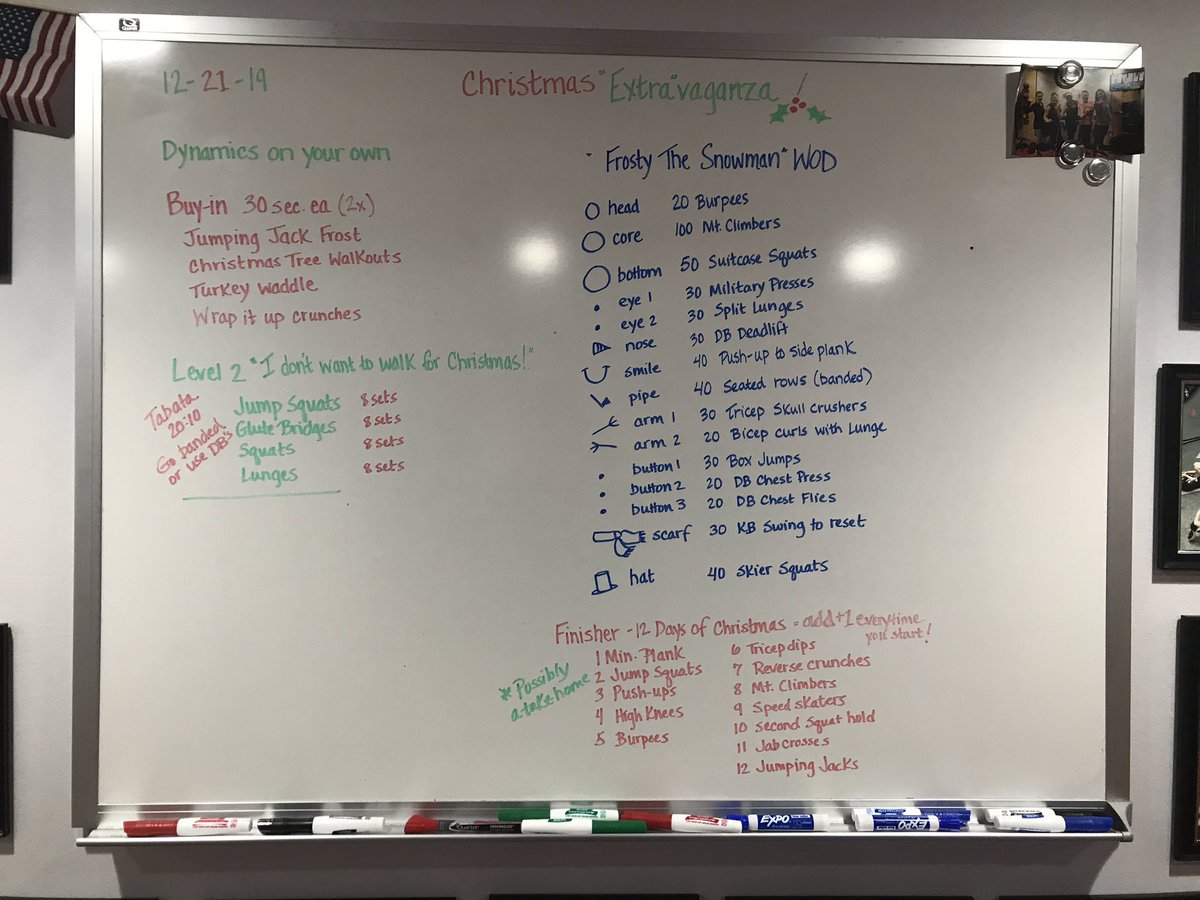 12-21-19
Christmas "Extra"vaganza!
Dynamics on your own
Buy-in 30 sec. ea (2x)
Jumping Jack Frost
Christmas Tree Walkouts
Turkey Waddle
Wrap it up crunches
Level 2 "I don't want to walk for Christmas!"
Tabata
20:10
Go banded
or use DB's
Jump Squats 8 sets
Glute Bridges 8 sets
Squats 8 sets
Lunges 8 sets
"Frosty The Snowman" WOD
head 20 Burpees
core 100 Mt. Climbers
bottom 50 Suitcase Squats
eye 1 30 Military Presses
eye 2 30 Split Lunges
nose 30 DB Deadlift
smile 40 Push-up to side plank
pipe 40 Seated rows (banded)
arm 1 30 Tricep Skull crushers
arm 2 20 Bicep curls with Lunge
button 1 30 Box Jumps
button 2 20 DB Chest Press
button 3 20 DB Chest Flies
scarf 30 KB Swing to reset
hat 40 Skier Squats
Finisher - 12 Days of Christmas = add +1 everytime
you start!
* Possibly
a take home
1 Min. Plank
2 Jump Squats
3 Push-ups
4 High Knees
5 Burpees
6 Tricep dips
7 Reverse crunches
8 Mt. Climbers
9 Speed skaters
10 Second Squat hold
11 Jab crosses
12 Jumping Jacks
EXPO
EXPO